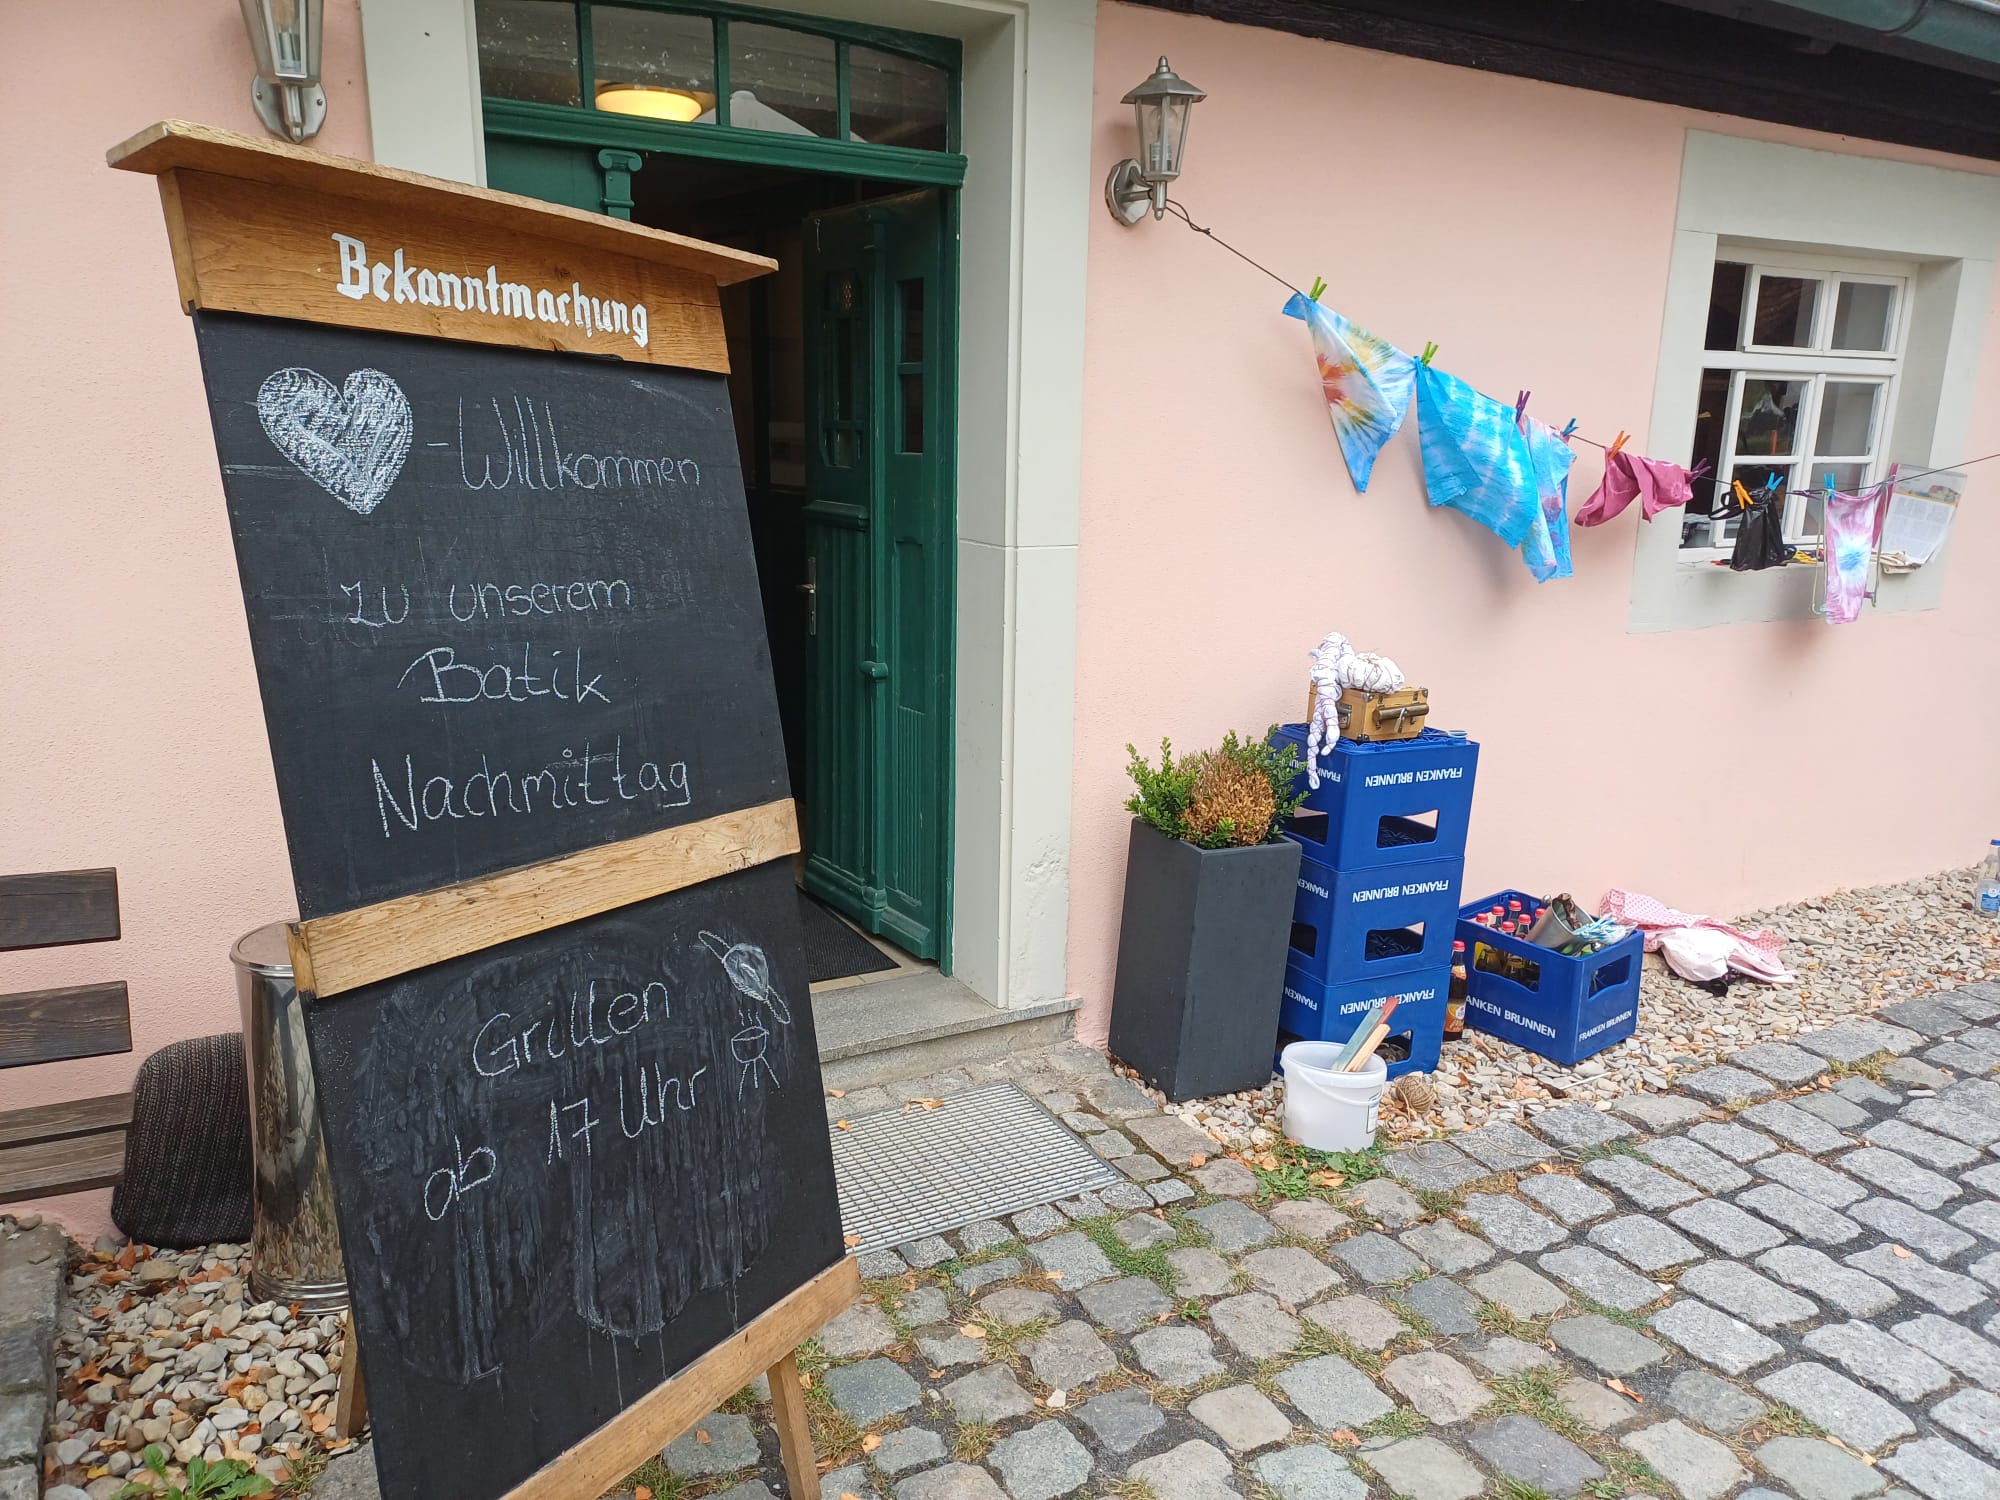 Bekanntmachung
-Willkommen
zu unserem
Batik
Nachmittag
Grillen
ab 17 Uhr
FRANKEN BRUNNEN
FRANKEN BRUNNEN
FRANKEN BRUNNEN
ANKEN BRUNNEN
FRANKEN BRUNNEN